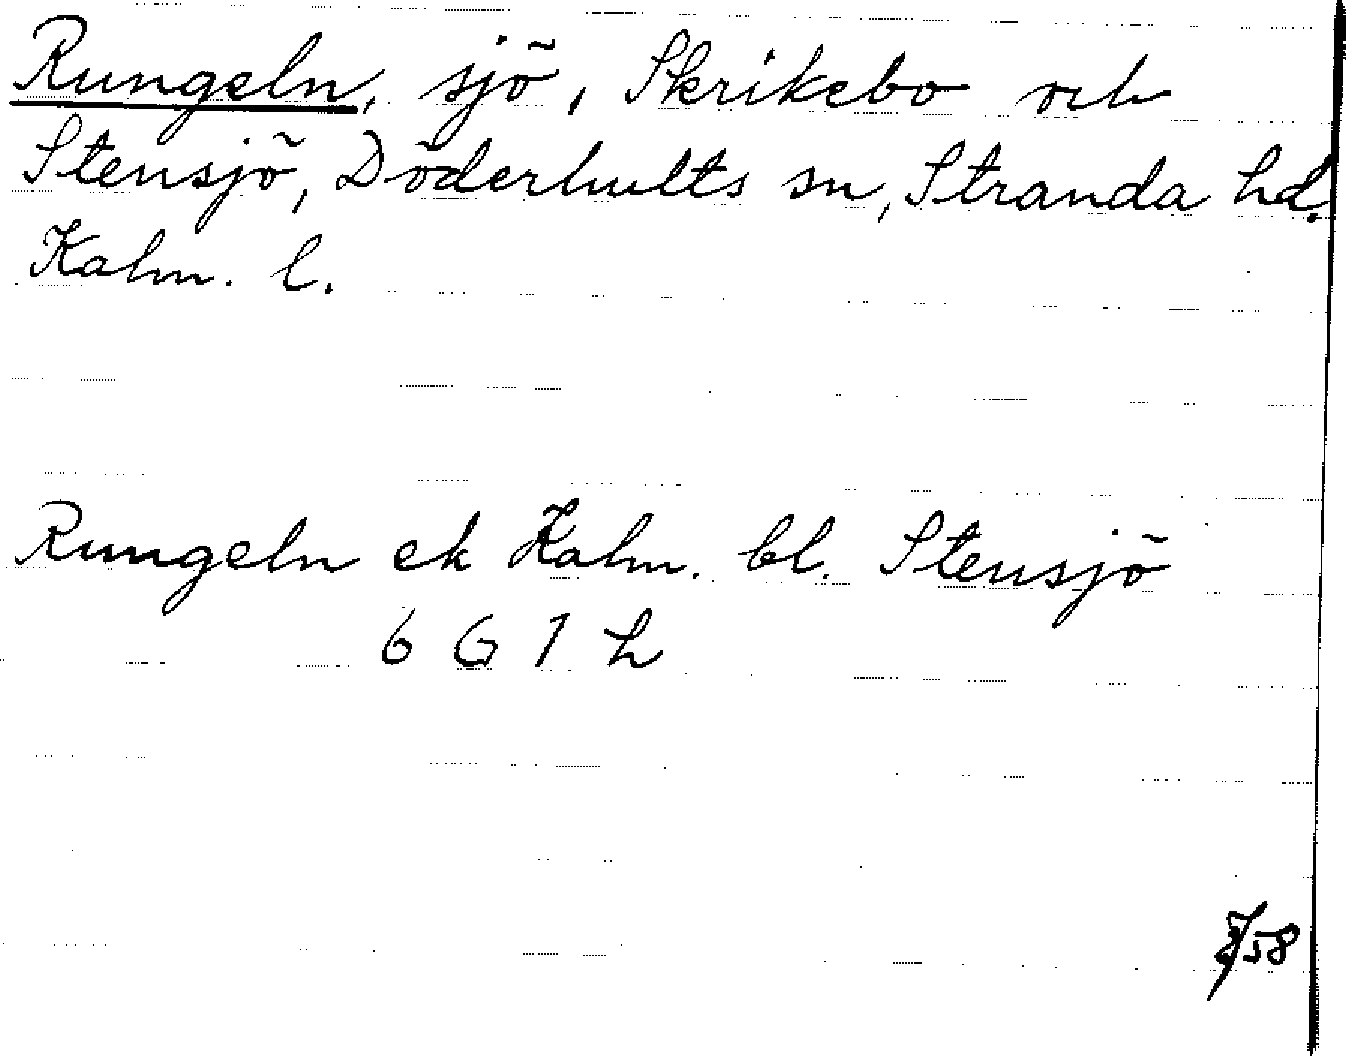 Rungeln, sjö, Skrikebo och
Stensjö, Döderhults sn, Stranda hd.
Kalm. l.
Rungeln ek Kalm. bl. Stensjö
6 G 7 h
/58